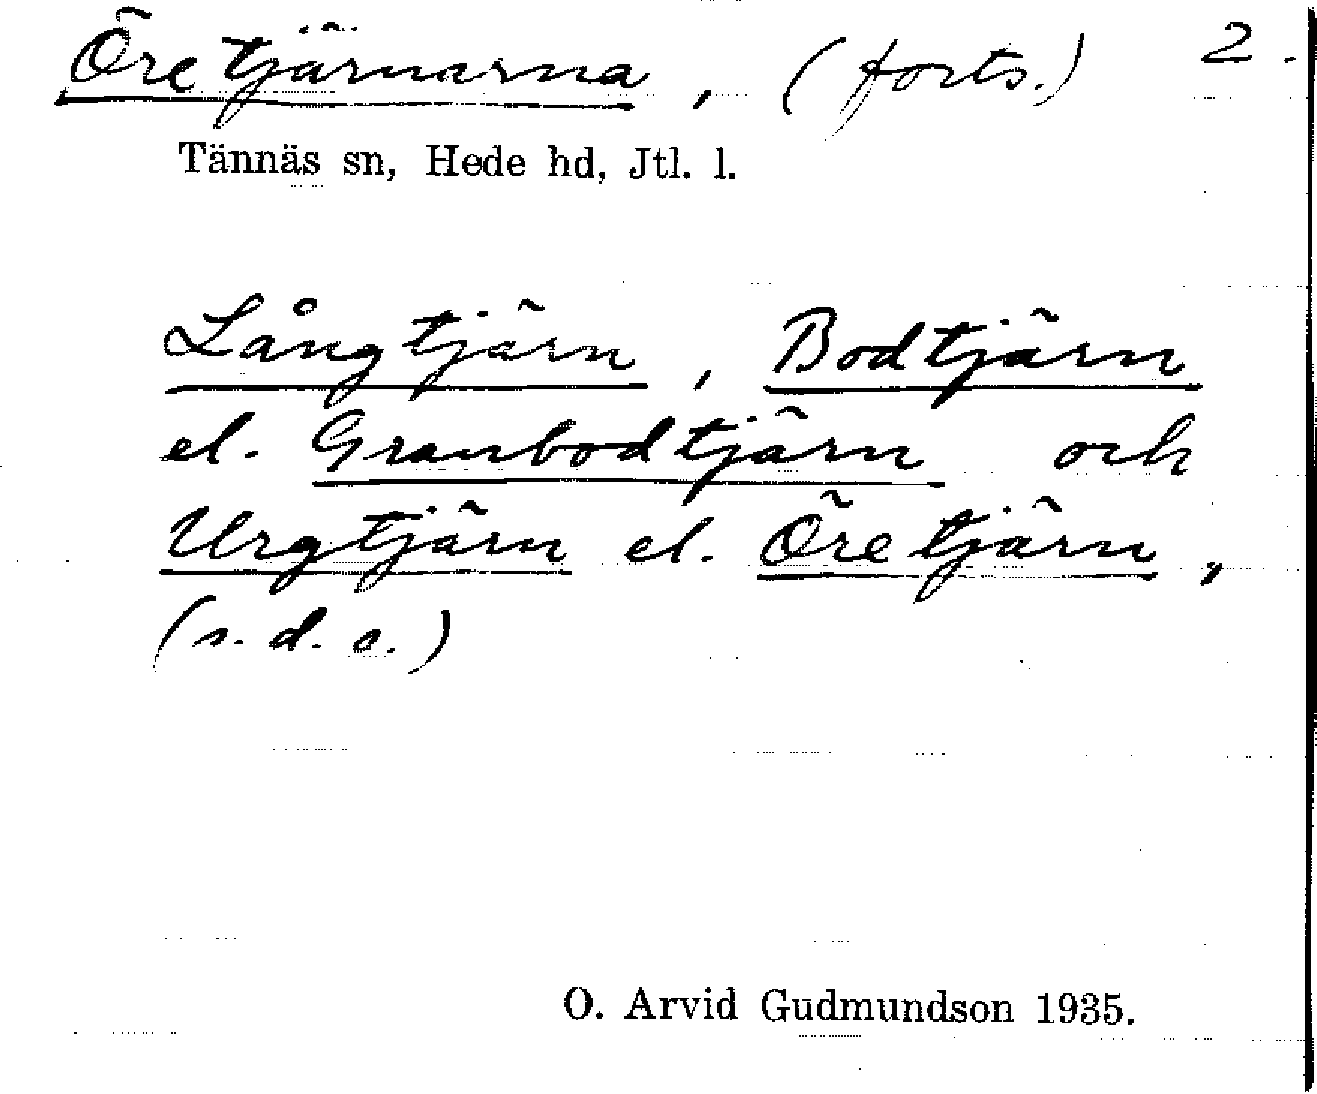 Öretjärnarna, (forts.) 2.
Tännäs sn, Hede hd, Jtl. l.
Långtjärn, Bodtjärn
el. Granbodtjärn och
Urgtjärn el. Öretjärn,
(s.d.o.)
O. Arvid Gudmundson 1935.